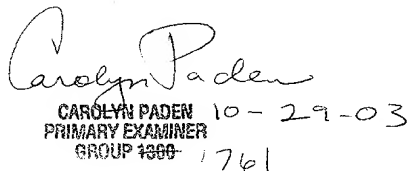 Carolyn Paden
CAROLYN PADEN 10-29-03
PRIMARY EXAMINER
GROUP 1300 1761